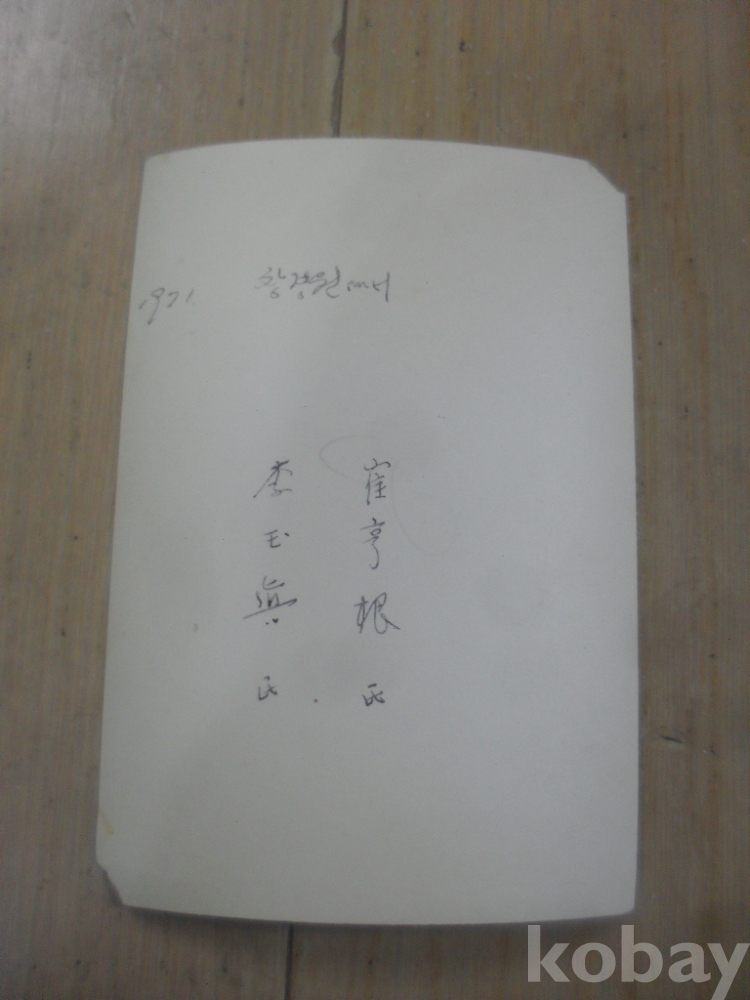 1971. 창경원에서
崔亨根 氏
李玉眞 氏.
kobay